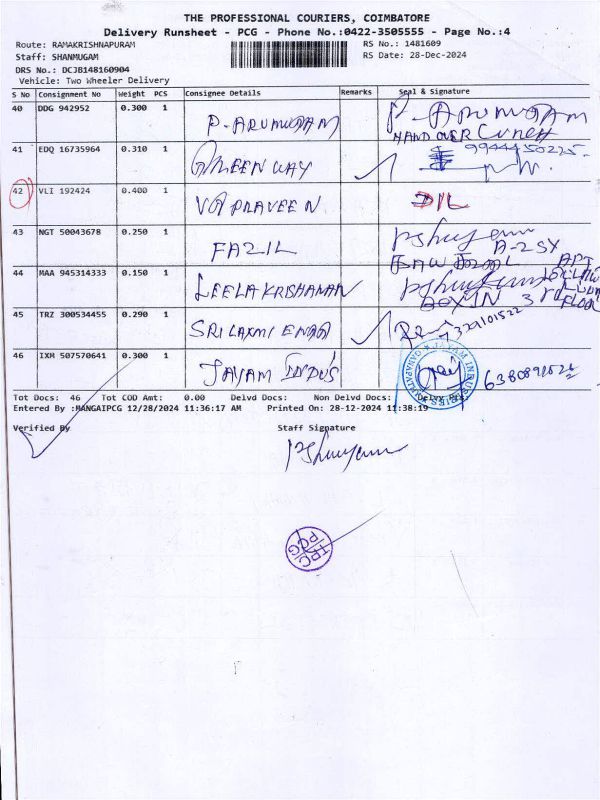 THE PROFESSIONAL COURIERS, COIMBATORE
Delivery Runsheet - PCG - Phone No.:0422-3505555 - Page No.:4
Route: RAMAKRISHNAPURAM RS No.: 1481609
Staff: SHANMUGAM RS Date: 28-Dec-2024
DRS No.: DCJB148160904
Vehicle: Two Wheeler Delivery
S No Consignment No Weight PCS Consignee Details Remarks Seal & Signature
40 DDG 942952 0.300 1 P. ARUMUGAM P. ARUMUGAM
HAND OVER
41 EDQ 16735964 0.310 1 GREEN WAY 9944450225
42 VLI 192424 0.400 1 PRAVEEN DIL
43 NGT 50043678 0.250 1 FAZIL
A-2 SY
44 MAA 945314333 0.150 1 LEELA KRISHANAN
APT
BOX IN 3rd FLOOR
45 TRZ 300534455 0.290 1 SRI LAXMI
46 IXM 507570641 0.300 1 JAYAM INDUS
Tot Docs: 46 Tot COD Amt: 0.00 Delvd Docs: Non Delvd Docs:
Entered By :MANGAIPCG 12/28/2024 11:36:17 AM Printed On: 28-12-2024 11:38:19
Verified By Staff Signature
TPC
PCG